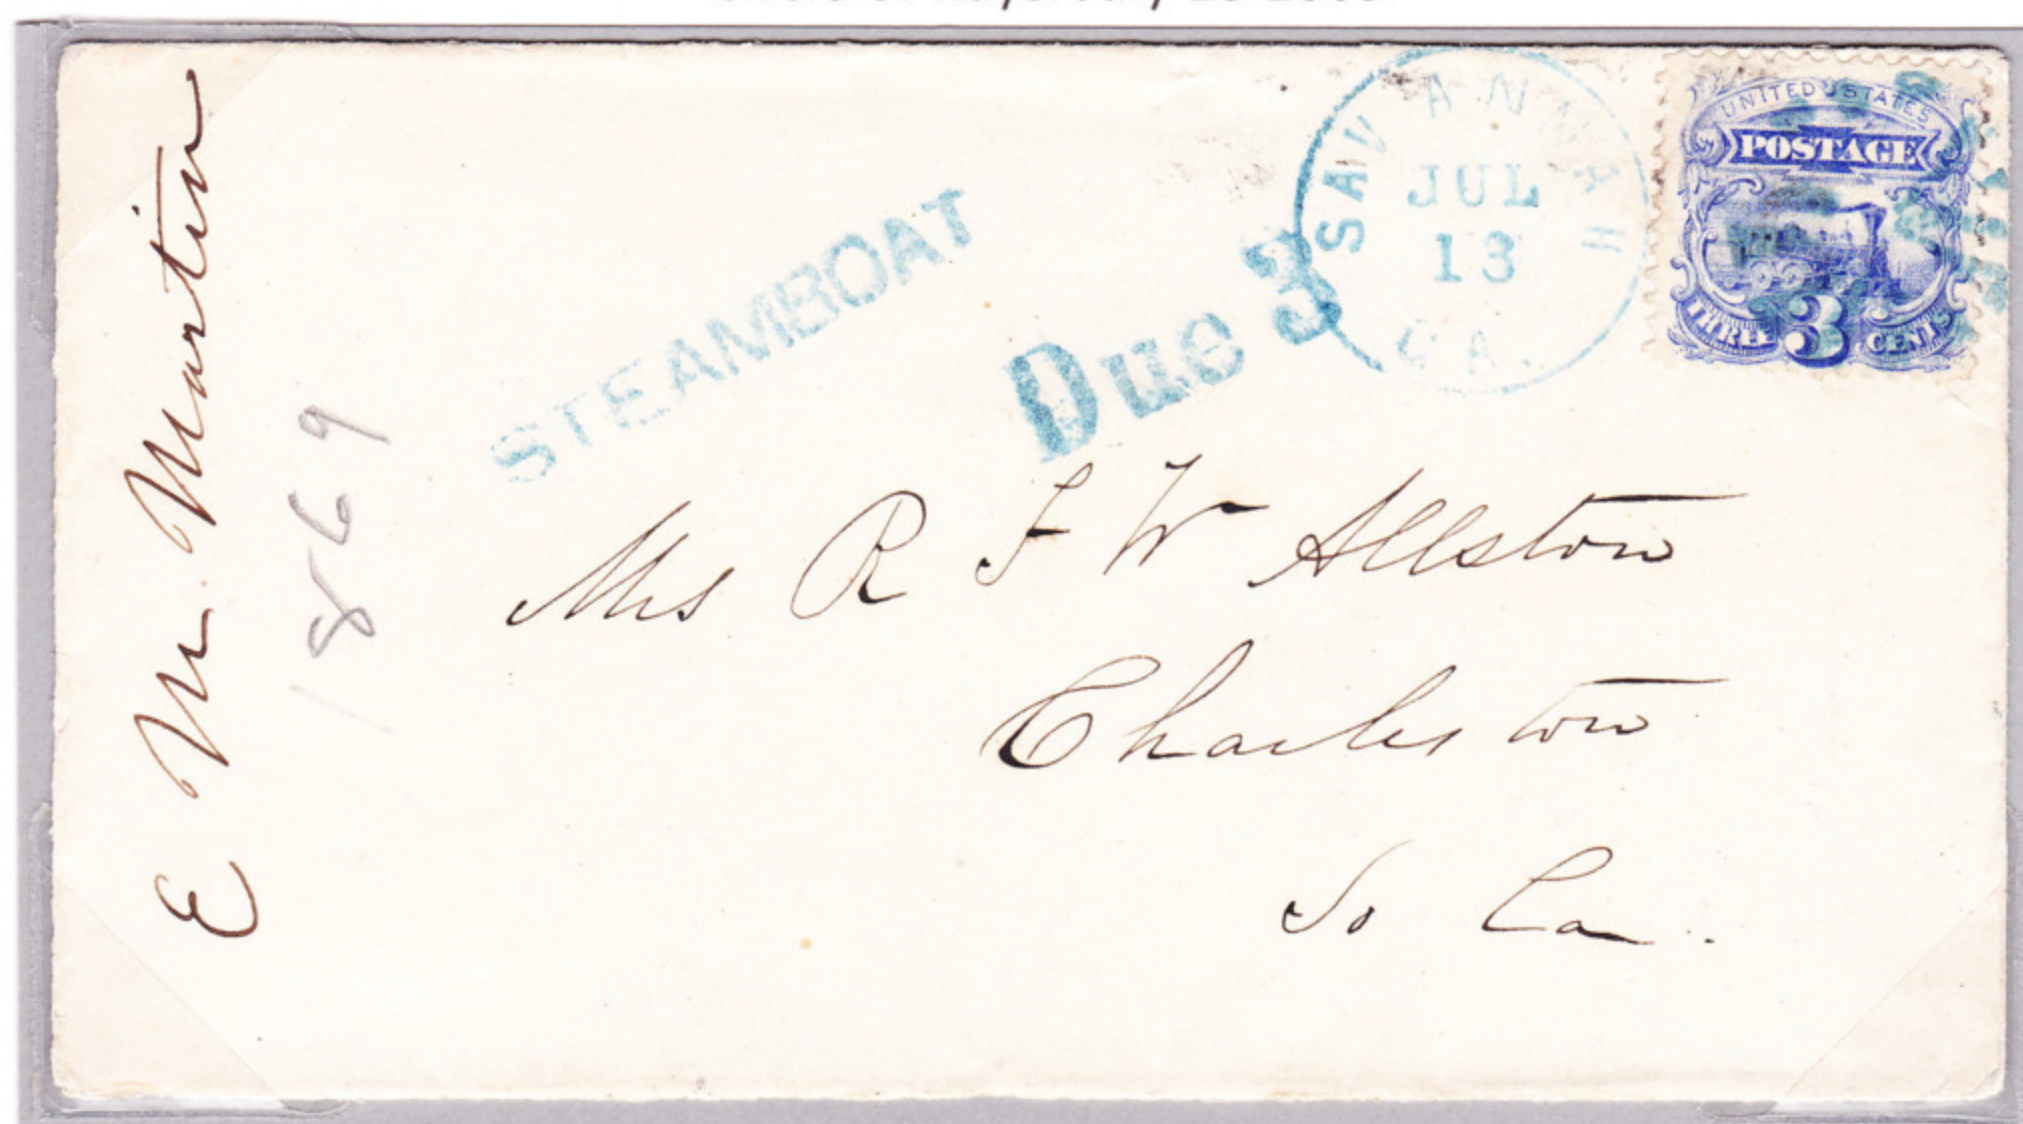 E M. Martin
1869
STEAMBOAT
Due 3
SAVANNAH
JUL
13
GA.
UNITED STATES
POSTAGE
THREE 3 CENTS
Mrs R F W Allston
Charleston
So Ca.